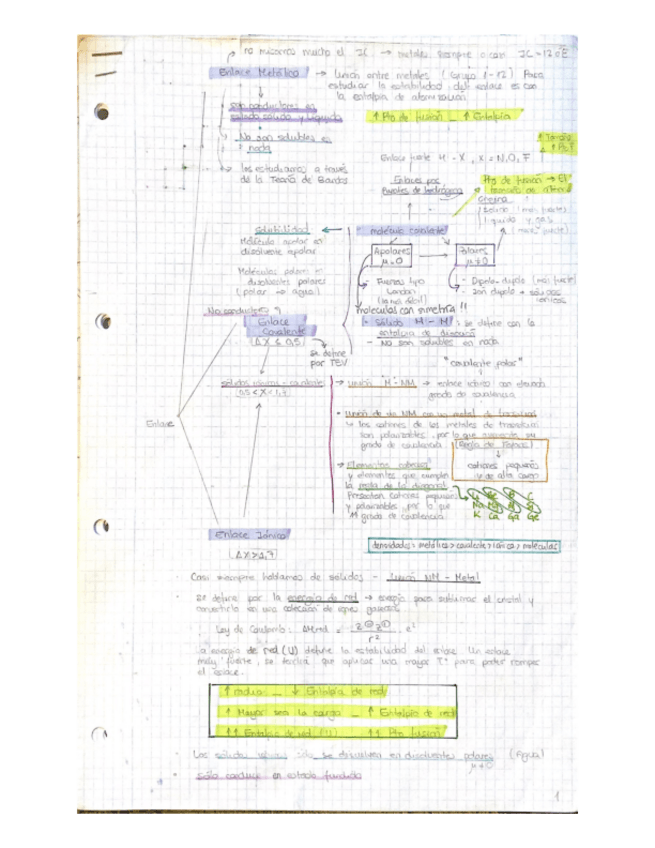 no miramos mucho el IC → metales siempre o con IC = 12 o E
Enlace Metálico → Unión entre metales (Grupo 1-12) Para
estudiar la estabilidad del enlace es con
la entalpía de atomización
son conductores en
estado sólido y líquido
↑ Pto de fusión _ ↑ Entalpía
No son solubles en
nada
↑ Tamaño
↑ Pto F
Enlace fuerte H - X, X = N, O, F
los estudiamos a través
de la Teoría de Bandas
Enlaces por
Puentes de hidrógeno
Pto de fusión → El
tamaño
sólido (más fuerte)
líquido y gas
solubilidad
molécula covalente
Molécula apolar en
disolvente apolar
Apolares
μ = 0
Polares
μ ≠ 0
Moléculas polares en
disolventes polares
(polar → agua)
- Fuerzas tipo
London
(la más débil)
- Dipolo-dipolo (más fuerte)
- Ion dipolo → sólidos
iónicos
moleculas con simetría !!
No conductores
Enlace
Covalente
(ΔX ≤ 0,5)
- Sólido M - M : se define con la
entalpía de
- No son solubles en nada
se define
por TEV
"covalente polar"
sólidos iónicos - covalente
(0,5 < X < 1,7)
→ Unión M - NM → enlace iónico con elevado
grado de covalencia
Enlace
• Unión de de NM con un metal de transición
↳ los cationes de los metales de transición
son polarizables, por lo que aumenta su
grado de covalencia.
Regla de Fajans
↓
cationes pequeños
y de alta carga
→ Elementos
y elementos que cumplen
la regla de la diagonal
Presentan cationes pequeños
y polarizables por lo que
↑ grado de covalencia.
Enlace Iónico
(ΔX > 1,7
densidades: metálico > covalente > iónico > moléculas
· Casi siempre hablamos de sólidos - Unión NM - Metal
· se define por la energía de red → energía para sublimar el cristal y
convertirlo en una colección de iones gaseosos
Ley de Coulomb: ΔHred = Z⊕ Z⊖ / r² e²
La energía de red (U) define la estabilidad del enlace. Un enlace
muy fuerte, se tendrá que aplicar una mayor Tª para poder romper
el enlace.
↑ radio _ ↓ Entalpía de red
↑ Mayor sea la carga _ ↑ Entalpía de red
↑↑ Entalpía de red (U) ↑↑ Pto fusión
· Los sólidos iónicos sólo se disuelven en disolventes polares (Agua)
μ ≠ 0
· sólo conduce en estado fundido
1